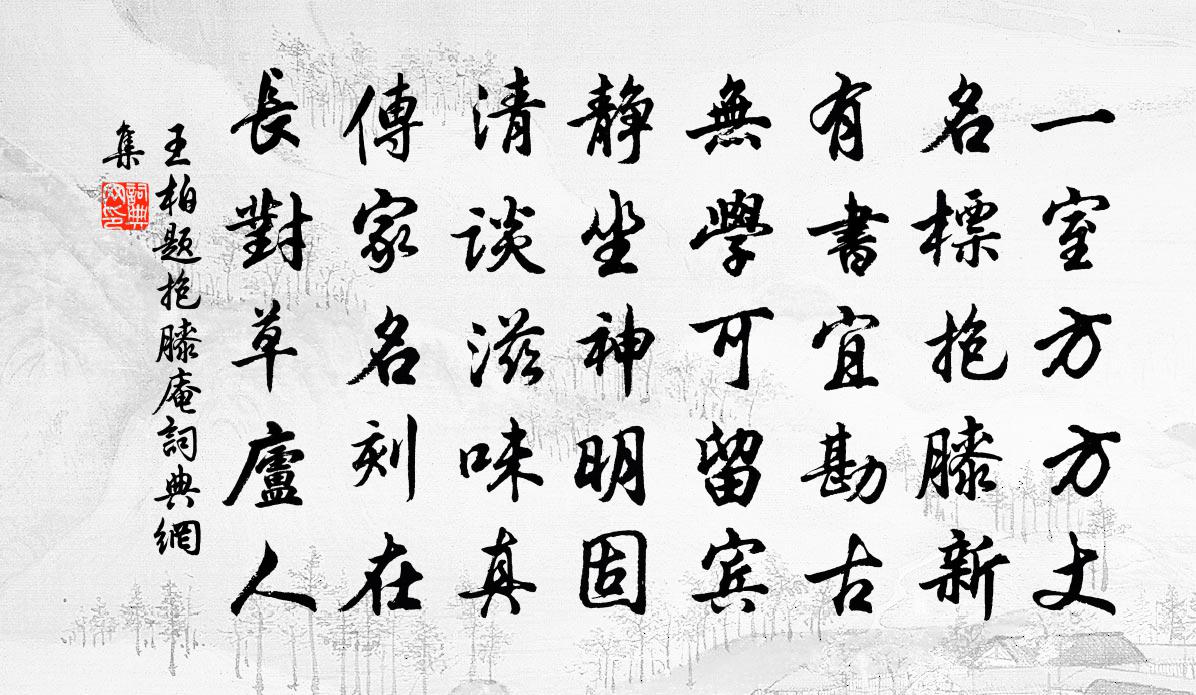 一室方方丈
名標抱膝新
有書宜勘古
無學可留宾
静坐神明固
清談滋味真
傳家名刻在
長對草廬人
王柏题抱膝庵詞典網
集
詞典網印